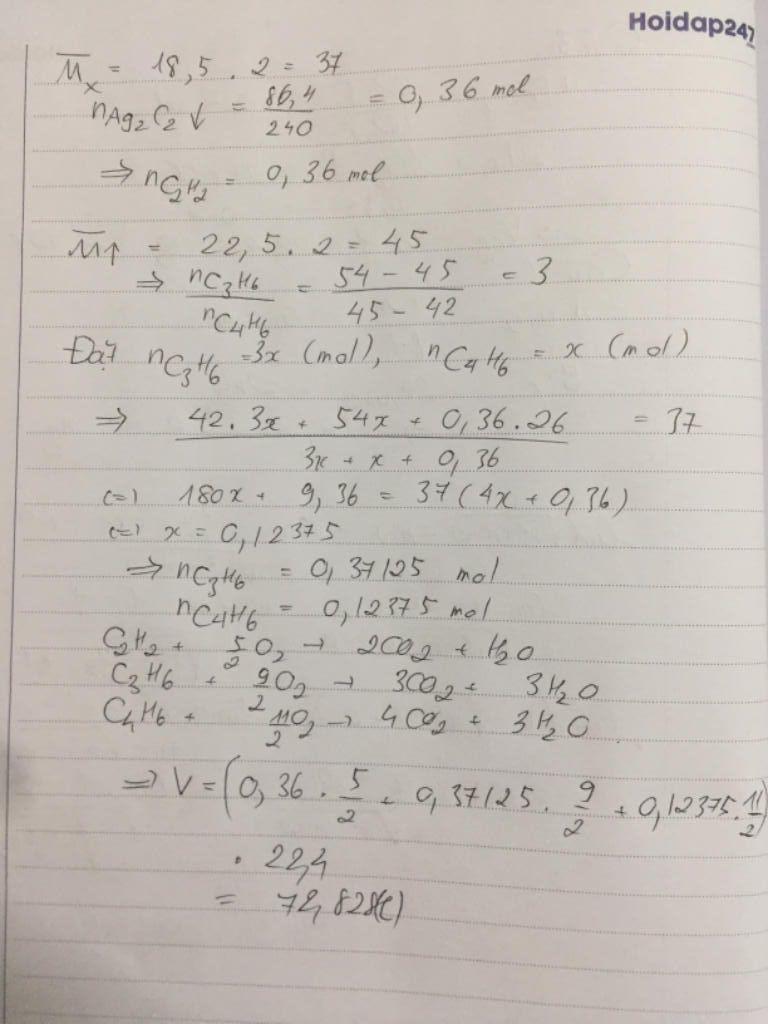 Hoidap247
M̅x = 18,5 . 2 = 37
nAg2C2↓ = 86,4/240 = 0,36 mol
⇒ nC2H2 = 0,36 mol
M̅↑ = 22,5 . 2 = 45
⇒ nC3H6/nC4H6 = (54 - 45)/(45 - 42) = 3
Đặt nC3H6 = 3x (mol), nC4H6 = x (mol)
⇒ (42.3x + 54x + 0,36.26)/(3x + x + 0,36) = 37
(=) 180x + 9,36 = 37(4x + 0,36)
(=) x = 0,12375
⇒ nC3H6 = 0,37125 mol
nC4H6 = 0,12375 mol
C2H2 + 5/2 O2 → 2CO2 + H2O
C3H6 + 9/2 O2 → 3CO2 + 3H2O
C4H6 + 11/2 O2 → 4CO2 + 3H2O
⇒ V = (0,36 . 5/2 + 0,37125 . 9/2 + 0,12375 . 11/2)
. 22,4
= 72,828(l)